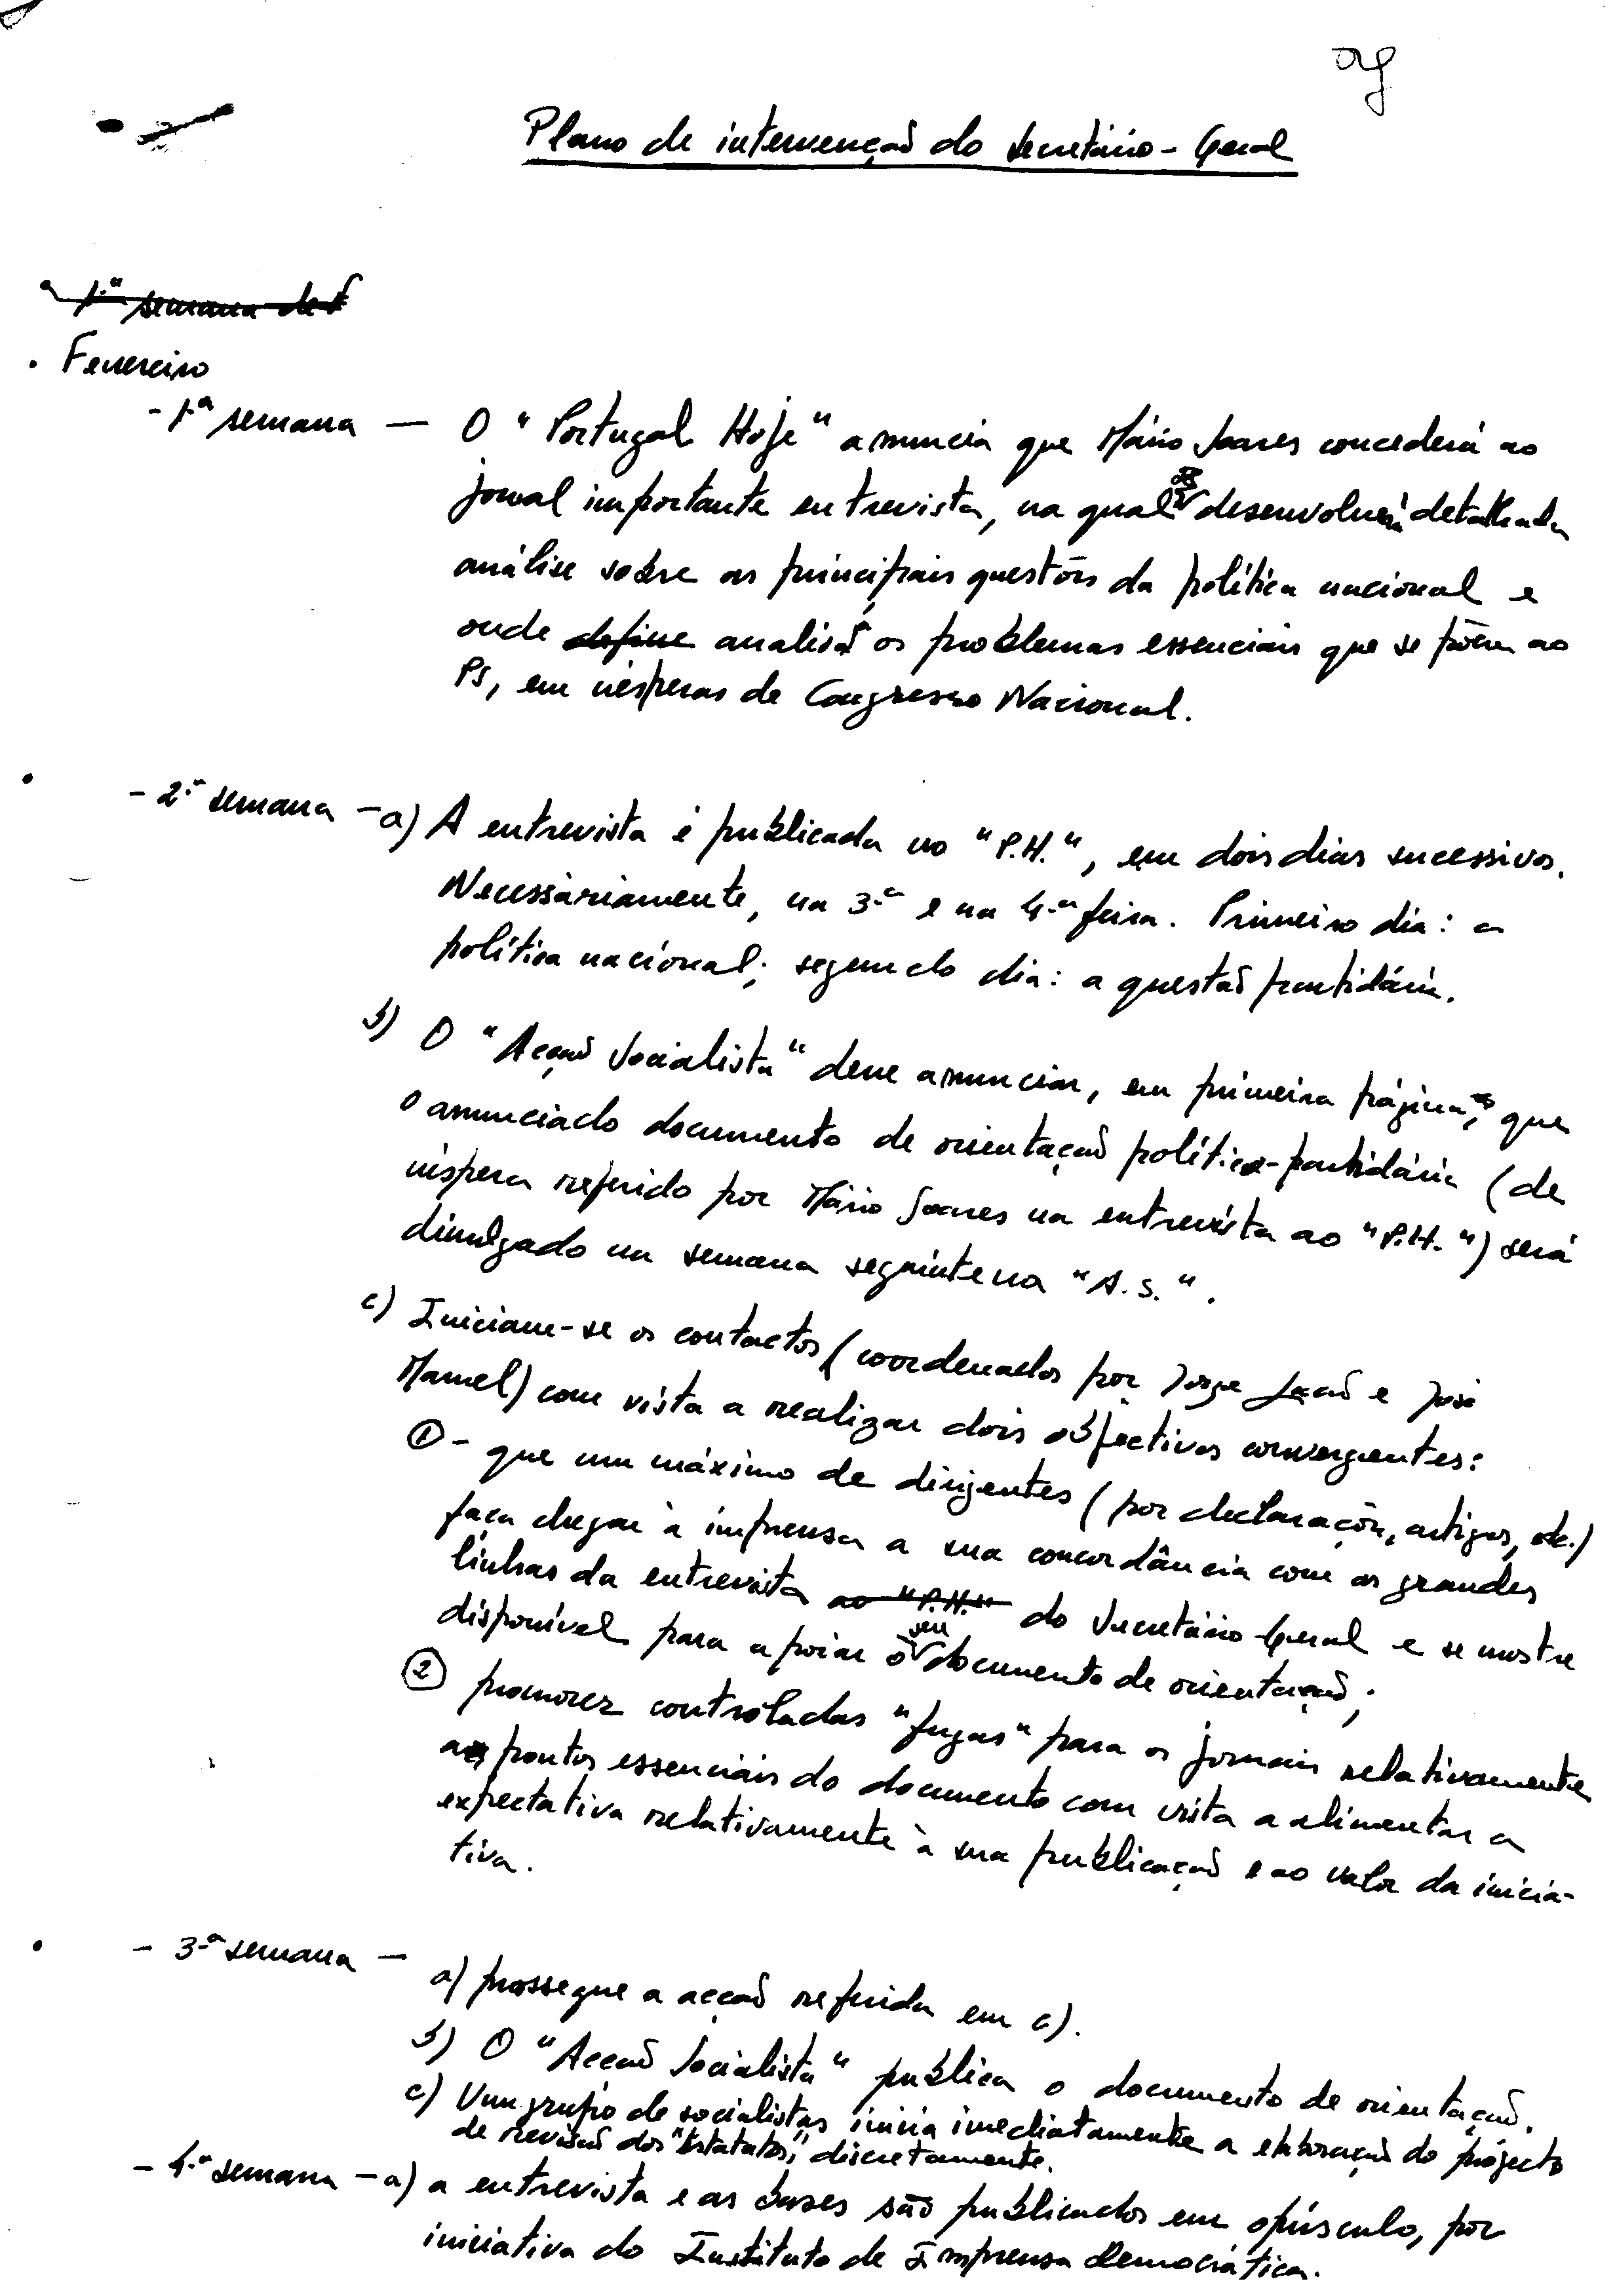 Plano de intervenção do Secretário-Geral
1.ª semana de F
. Fevereiro
- 1ª semana — O "Portugal Hoje" anuncia que Mário Soares concederá ao
jornal importante entrevista, na qual desenvolverá detalhada
análise sobre as principais questões da política nacional e
onde define analisa os problemas essenciais que se põem ao
PS, em vésperas de Congresso Nacional.
- 2.ª semana - a) A entrevista é publicada no "P.H.", em dois dias sucessivos.
Necessàriamente, na 3.ª e na 4.ª feira. Primeiro dia: a
política nacional; segundo dia: a questão partidária.
b) O "Acção Socialista" deve anunciar, em primeira página, que
o anunciado documento de orientação político-partidária (de
véspera referido por Mário Soares na entrevista ao "P.H.") será
divulgado na semana seguinte na "A.S.".
c) Iniciam-se os contactos (coordenados por Jorge Lacão e José
Manuel) com vista a realizar dois objectivos convergentes:
① - que um máximo de dirigentes (por declarações, artigos, etc.)
faça chegar à imprensa a sua concordância com as grandes
linhas da entrevista ao "P.H." do Secretário-Geral e se mostre
disponível para apoiar o seu documento de orientação;
② promover controladas "fugas" para os jornais relativamente
aos pontos essenciais do documento com vista a alimentar a
expectativa relativamente à sua publicação e ao valor da inicia-
tiva.
- 3.ª semana —
a) prossegue a acção referida em c).
b) O "Acção Socialista" publica o documento de orientação.
c) Um grupo de socialistas inicia imediatamente a elaboração do projecto
de revisão dos "Estatutos", discretamente.
- 4.ª semana - a) a entrevista e as bases são publicados em opúsculo, por
iniciativa do Instituto de Imprensa Democrática.